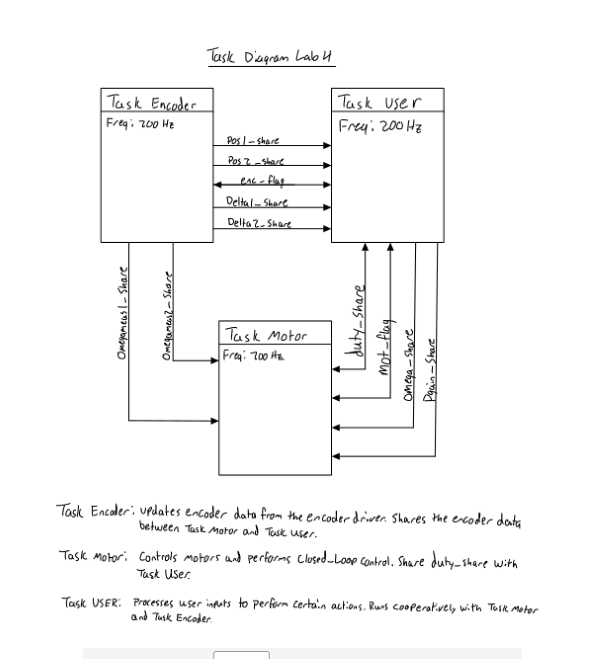 Task Diagram Lab 4
Task Encoder
Freq: 200 Hz
Task User
Freq: 200 Hz
Pos1_share
Pos2_share
enc_flag
Delta1_Share
Delta2_Share
Omegameas1_Share
Omegameas2_Share
Task Motor
Freq: 200 Hz
duty_Share
mot_flag
Omega_Share
Pgain_Share
Task Encoder: updates encoder data from the encoder driver. Shares the encoder data
between Task Motor and Task User.
Task Motor: Controls motors and performs Closed_Loop Control. Share duty_share with
Task User.
Task USER: Processes user inputs to perform certain actions. Runs cooperatively with Task Motor
and Task Encoder.